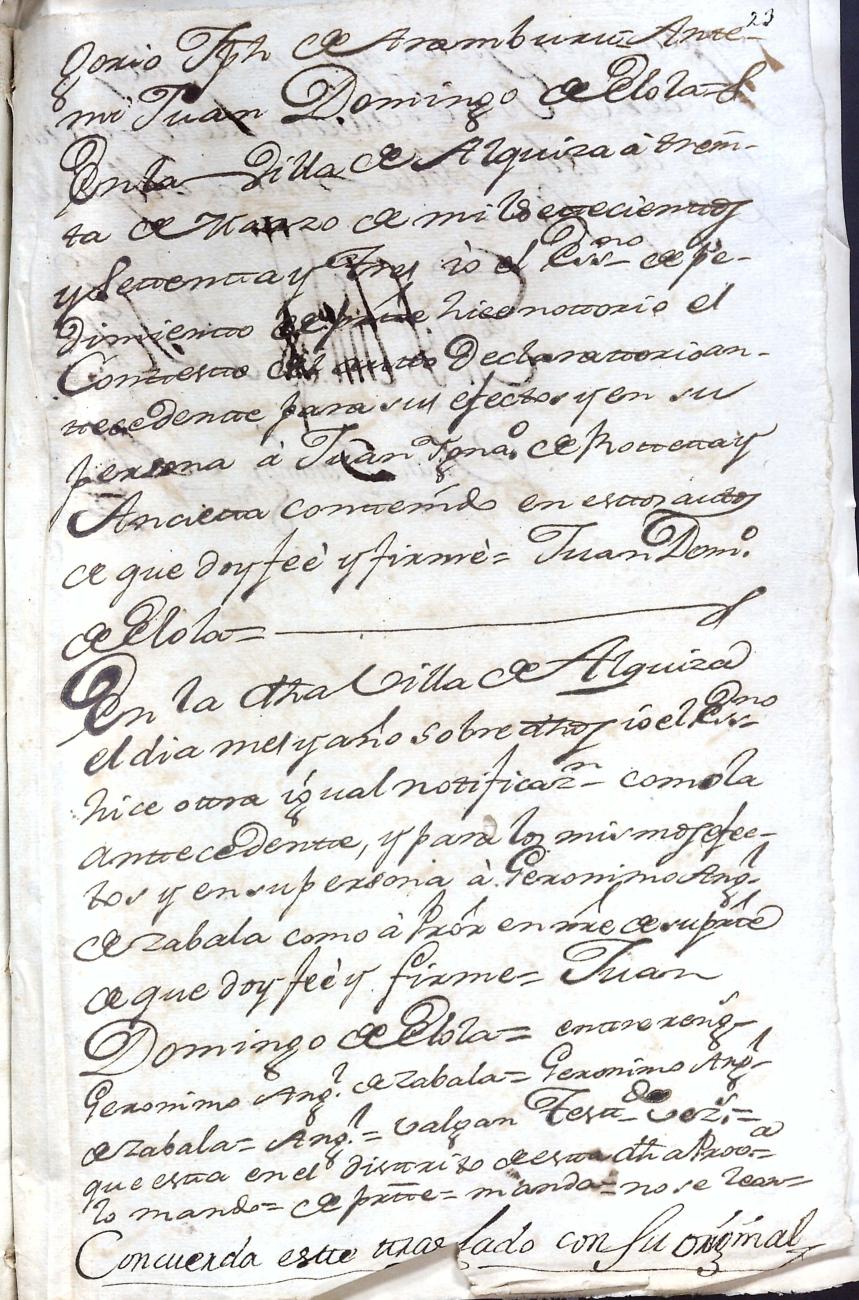 23
gorio Jph de Aramburu= Ante-
mi Juan Domingo de Elola=
En la Villa de Alquiza à trein-
ta de Marzo de mil settecienttos
y Settentta y Tres io el Essno de pe-
dimientto de partte hice nottorio el
Conttestto del autto Declarattorio an-
ttecedentte para sus efectos y en su
persona à Juan Ignao de Rotteta y
Ancietta contenido en esttos autos
de que doy feè y firmè= Juan Domo
de Elola=
En la dha Villa de Alquiza
el dia mes y año sobre dhos io el Essno
hice ottra igual notificazn como la
anttecedentte, y para los mismos efec-
tos y en su persona à Geronimo Angl
de Zabala como à Pror en nre de su prtte
de que doy feè y firme= Juan
Domingo de Elola= entre reng.s
Geronimo Angl de Zabala= Geronimo Angl
de Zabala= Angl= valgan Testdo
que esta en el distrito de esta dha Prova=
lo mando= de prtte= manda= no se lean=
Concuerda este traslado con su original